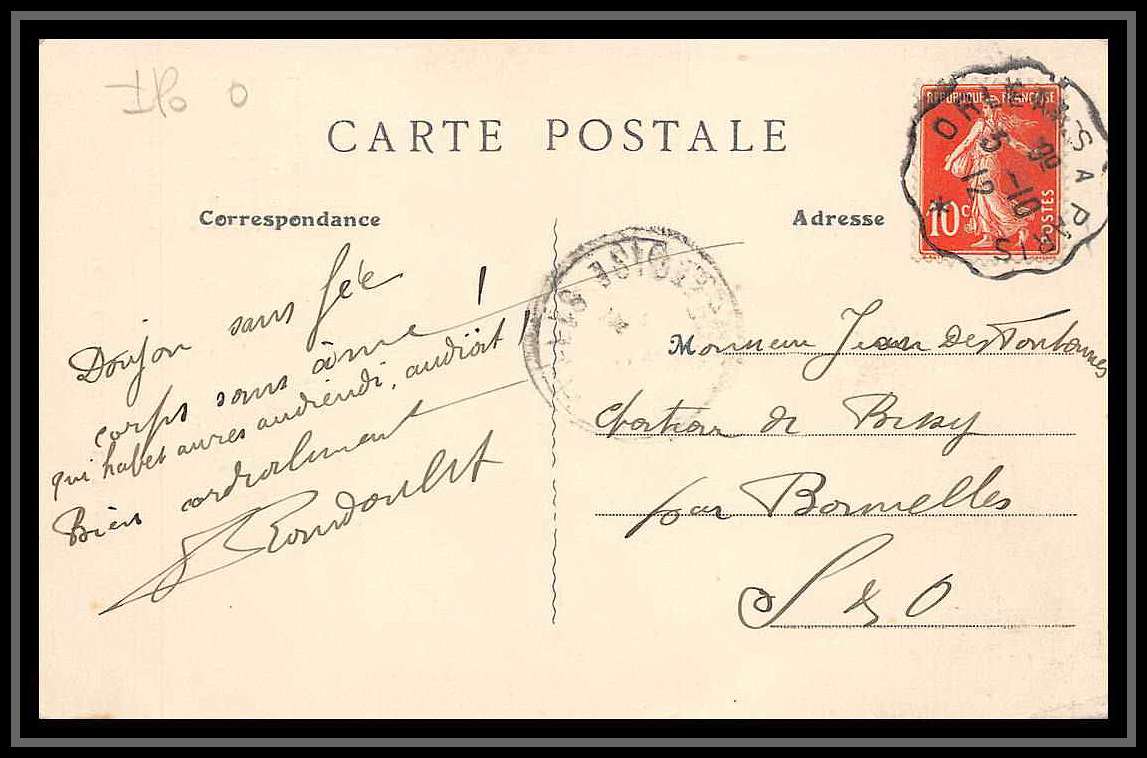 CARTE POSTALE
Correspondance
Adresse
REPUBLIQUE FRANÇAISE
10c POSTES
ORLEANS A PARIS
5 -10
12
*
Donjon sans fée
corps sans âme !
qui habet aures audiendi, audiat !
Bien cordialement
Monsieur Jean des Fontaines
de Bissy
par Bormelles
S & O